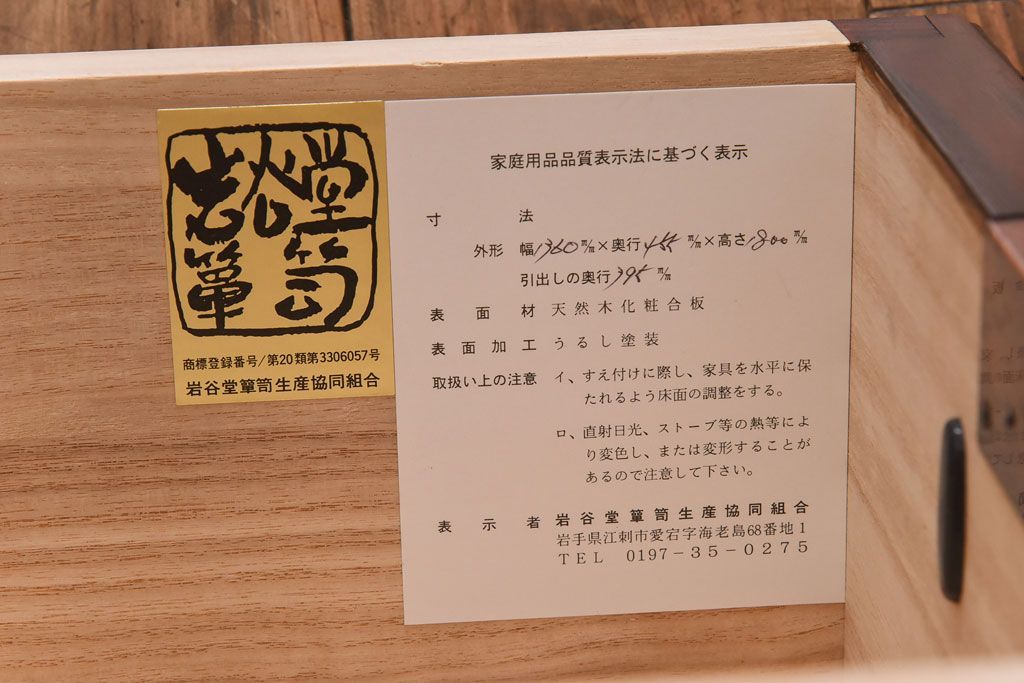 岩谷堂
簞笥
商標登録番号/第20類第3306057号
岩谷堂簞笥生産協同組合
家庭用品品質表示法に基づく表示
寸法
外形 幅1360m/m×奥行455m/m×高さ1800m/m
引出しの奥行395m/m
表面材 天然木化粧合板
表面加工 うるし塗装
取扱い上の注意 イ、すえ付けに際し、家具を水平に保
たれるよう床面の調整をする。
ロ、直射日光、ストーブ等の熱等によ
り変色し、または変形することが
あるので注意して下さい。
表示者 岩谷堂簞笥生産協同組合
岩手県江刺市愛宕字海老島68番地1
TEL 0197-35-0275